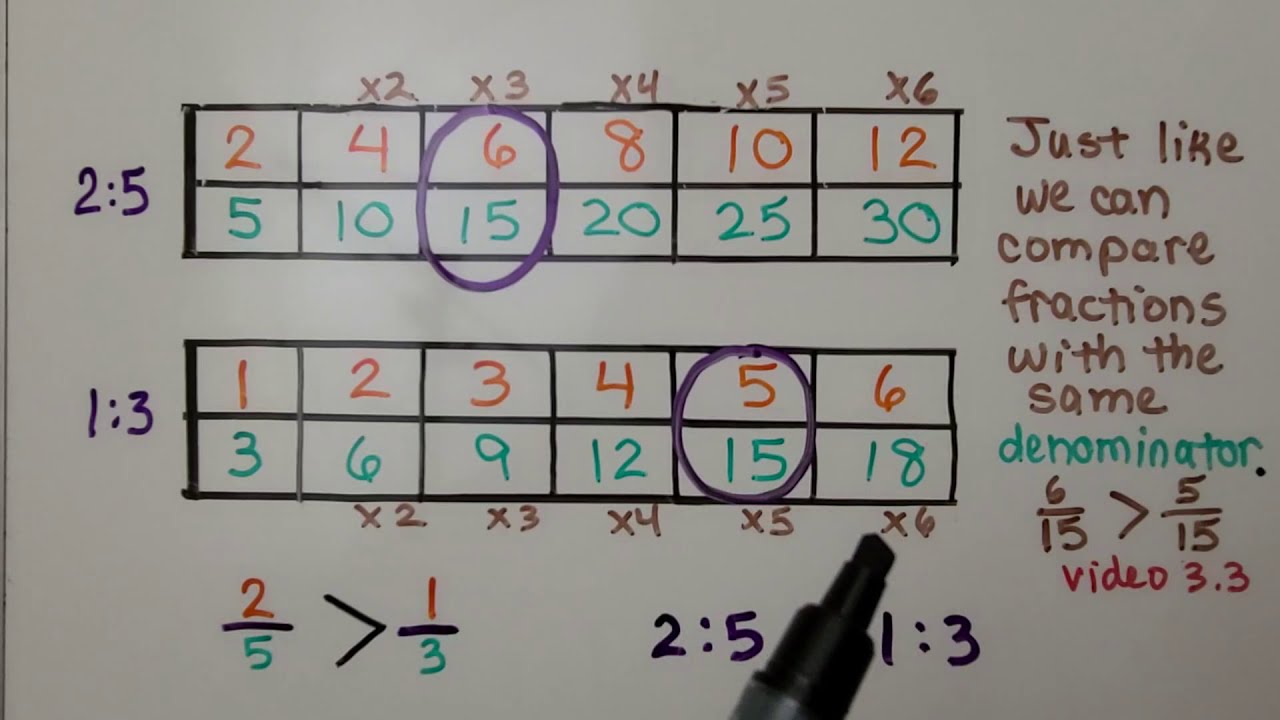 x2 x3 x4 x5 x6
2 4 6 8 10 12
2:5
5 10 15 20 25 30
1 2 3 4 5 6
1:3
3 6 9 12 15 18
x2 x3 x4 x5 x6
2/5 > 1/3
2:5 1:3
Just like
we can
compare
fractions
with the
same
denominator.
6/15 > 5/15
video 3.3